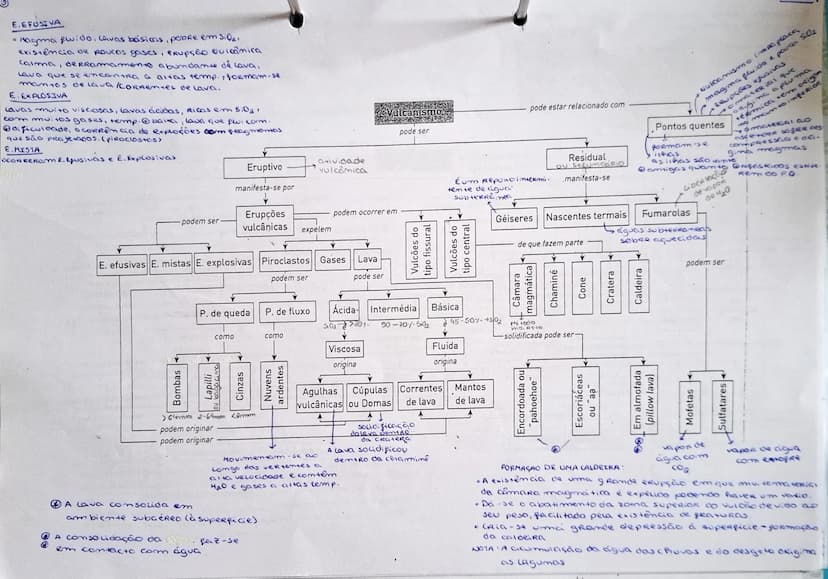 E. EFUSIVA
• Magma fluido, Lavas básicas, pobre em SiO2,
existência de poucos gases, erupção vulcânica
calma, derramamento abundante de lava,
lava que se encontra a altas temp., formam-se
mantos de lava/correntes de lava.
E. EXPLOSIVA
Lavas muito viscosas, lavas ácidas, ricas em SiO2,
com muitos gases, temp. baixa, lava que flui com
dificuldade, ocorrência de explosões com fragmentos
que são projetados (piroclastos)
E. MISTA
Ocorrem E. Efusivas e E. Explosivas
Vulcanismo
pode estar relacionado com
Pontos quentes
vulcanismo intraplaca
magma fluido e pouco SiO2
erupções efusivas
formam-se
ilhas
as ilhas são
antigas quanto
pode ser
Eruptivo
atividade
vulcânica
Residual
ou secundário
manifesta-se por
manifesta-se
É um repuxo intermi-
tente de água
subterrânea
Erupções
vulcânicas
podem ser
podem ocorrer em
expelem
Vulcões do
tipo fissural
Vulcões do
tipo central
Géiseres
Nascentes termais
Fumarolas
libertação
de vapor
de H2O
águas subterrâneas
sobre aquecidas
de que fazem parte
podem ser
E. efusivas
E. mistas
E. explosivas
Piroclastos
Gases
Lava
podem ser
pode ser
Câmara
magmática
Chaminé
Cone
Cratera
Caldeira
P. de queda
P. de fluxo
Ácida
Intermédia
Básica
SiO2 > 70%
50-70% SiO2
45-50% SiO2
solidificada pode ser
como
como
Viscosa
Fluida
origina
origina
Bombas
Lapilli
ou bagacina
Cinzas
Nuvens
ardentes
>64mm
2-64mm
<2mm
Agulhas
vulcânicas
Cúpulas
ou Domas
Correntes
de lava
Mantos
de lava
Encordoada ou
"pahoehoe"
Escoriáceas
ou "aa"
Em almofada
(pillow lava)
Mofetas
Sulfataras
podem originar
podem originar
solidificação
da lava dentro
da cratera
A lava solidificou
dentro da chaminé
Movimentam-se ao
longo das vertentes a
alta velocidade e contêm
H2O e gases a altas temp.
vapor de
água com
CO2
vapor de água
com enxofre
A lava consolida em
ambiente subaéreo (à superfície)
A consolidação da faz-se
em contacto com água
FORMAÇÃO DE UMA CALDEIRA:
• A existência de uma grande erupção em que muito material
da câmara magmática é expelido podendo haver um vazio.
• Dá-se o abatimento da zona superior do vulcão devido ao
seu peso, facilitado pela existência de fraturas.
• Cria-se uma grande depressão à superfície - formação
da caldeira
NOTA: A acumulação da água das chuvas e do degelo origina
as lagunas